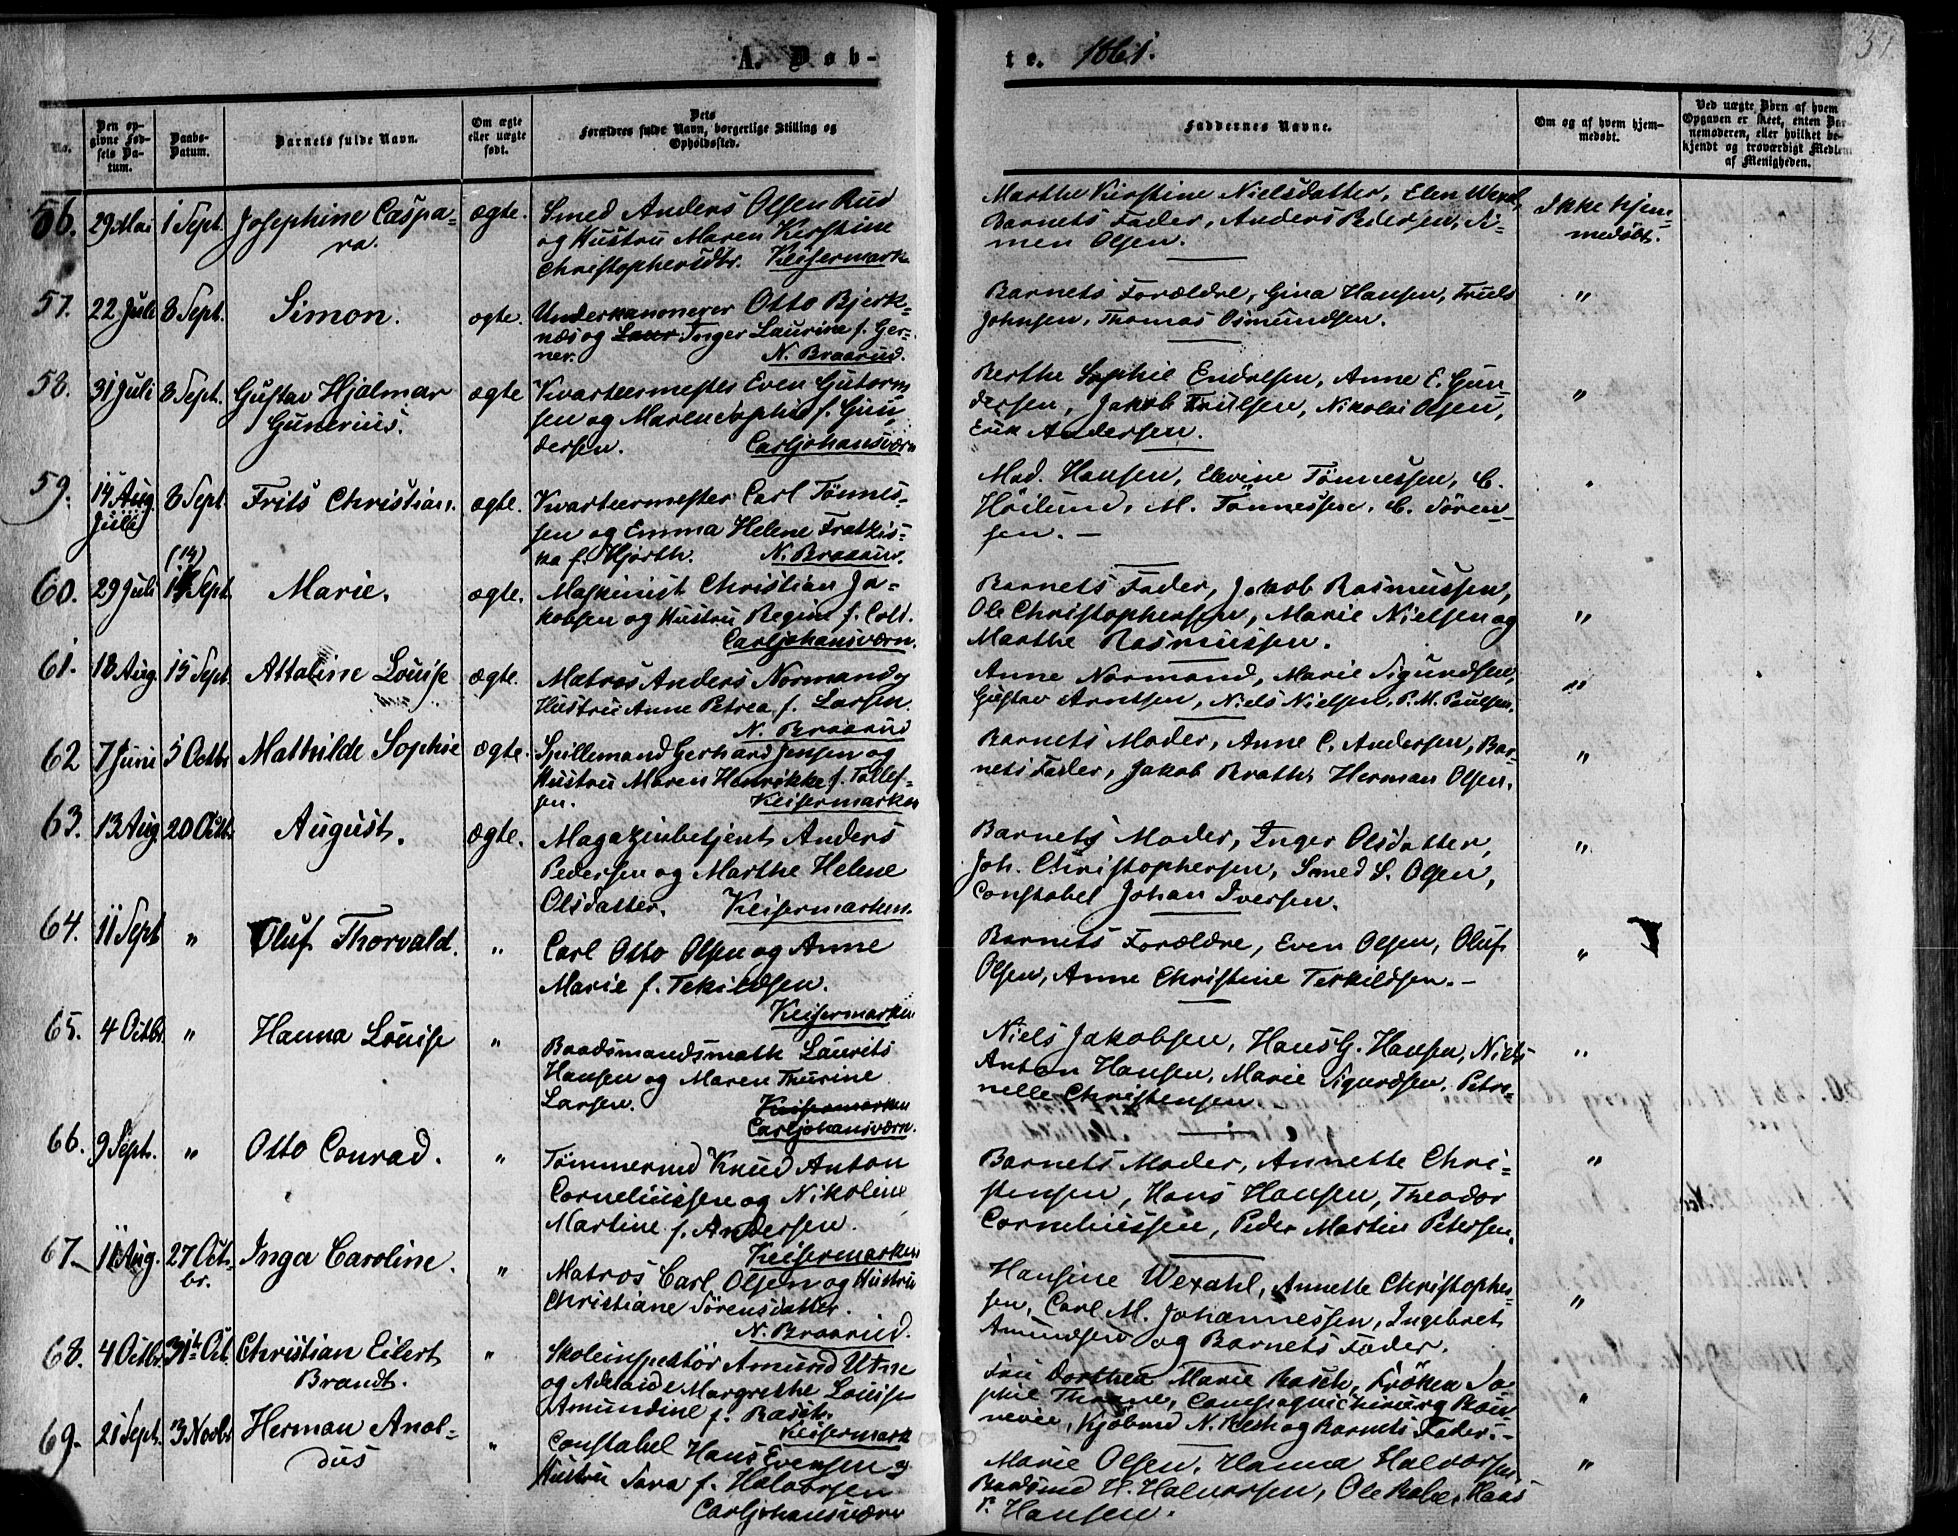 A. Døb-
te. 1861.
51.
No.
Den opgivne Fødsels Datum.
Daabs-Datum.
Barnets fulde Navn.
Om ægte eller uægte født.
Dets Forældres fulde Navn, borgerlige Stilling og Opholdssted.
Faddernes Navne.
Om og af hvem hjemmedøbt.
Ved uægte Børn af hvem Opgaven er skeet, enten Barnemoderen, eller hvilket bekjendt og troværdigt Medlem af Menigheden.
56. 29 Mai 1 Sept. Josephine Caspa=
ra. ægte. Smed Anders Olsen Rud
og Hustru Maren Kirstine
Christophersdtr. Keisermark
Marthe Kirstine Nielsdatter, Elen
Barnets Fader, Anders Pedersen, Si=
men Olsen.
Ikke hjem=
medøbt.
57. 22 Juli 8 Sept. Simon. ægte. Underkannoneer Otto Bjerk=
næs og Laur Inger Laurine f. Ger=
ner. N. Braarud.
Barnets Forældre, Gina Hansen, Truls
Johnsen, Thomas Osmundsen.
"
58. 31 Juli 8 Sept. Gustav Hjalmar
Gunerius. ægte Kvarteermester Even Gutorm
sen og Maren Sophie f. Gun
dersen. Carljohansværn
Berthe Sophie Endresen, Anne E. Gun
dersen, Jakob Trulsen, Nikolai Olsen,
Erik Andersen.
"
59. 14 Aug.
Juli 8 Sept. Frits Christian. ægte. Kvarteermester Carl Tønnes=
sen og Emma Helene Fratzis=
ka f. Hjorth. N. Braarud.
Mad. Hansen, Elevine Tønnessen, C.
Höilund, M. Tønnessen, C. Søren=
sen. —
60. 29 Juli (14) Sept. Marie. ægte. Maskinist Christian Ja=
kobsen og Hustru Regine f. Colt.
Carljohansværn.
Barnets Fader, Jakob Rasmussen,
Ole Christophersen, Marie Nielsen og
Marthe Rasmussen.
"
61. 18 Aug. 15 Sept. Attaline Louise ægte. Matros Anders Normand og
Hustru Anne Petrea f. Larsen.
N. Braarud
Anne Normand, Marie Sigundsen,
Gustav Arntsen, Niels Nielsen, P. M. Paulsen.
"
62 7 Juni 5 Octbr Mathilde Sophie ægte. Spillemand Gerhard Jensen og
Hustru Maren Henrikke f. Tollef=
sen. Keisermarken
Barnets Moder, Anne C. Andersen, Bar=
nets Fader, Jakob Brath, Herman Olsen.
"
63. 13 Aug. 20 Octb. August. ægte. Magazinbetjent Anders
Pedersen og Marthe Helene
Olsdatter. Keisermarken.
Barnets Moder, Inger Olsdatter,
Joh. Christophersen, Smed S. Olsen,
Constabel Johan Iversen.
"
64. 11 Sept " Oluf Thorvald. " Carl Otto Olsen og Anne
Marie f. Tekildsen.
Keisermarken
Barnets Forældre, Even Olsen, Oluf
Olsen, Anne Christine Terkildsen. —
"
65. 4 Octbr " Hanna Louise " Baadsmandsmath Laurits
Hansen og Maren Thurine
Larsen. Keisermarken
Carljohansværn.
Niels Jakobsen, Hans G. Hansen, Niels
Anton Hansen, Marie Sigurdsen, Petro=
nelle Christensen.
"
66. 9 Sept. " Otto Conrad. " Tømmermd Knud Anton
Corneliussen og Nikoline
Martine f. Andersen.
Keisermarken
Barnets Moder, Annette Chri=
stensen, Hans Hansen, Theodor
Corneliussen, Peder Martin Petersen.
"
67. 11 Aug. 27 Oct=
br. Inga Caroline. " Matros Carl Olsen og Hustru
Christiane Sørensdatter.
N. Braarud.
Hansine Wexahl, Annette Christopher=
sen, Carl M. Johannessen, Ingebret
Amundsen og Barnets Fader.
"
68. 4 Octbr 31te Oct. Christian Eilert
Brandt. " Skoleinspektør Amund Utne
og Adelaide Margrethe Louise
Amundine f. Rasch.
Keisermark
Fru Dorthea Marie Rasch, Frøken So=
phie Thorne, Compagnichirurg Bon=
nevie, Kjøbmd N. Resch og Barnets Fader. —
"
69. 21 Sept. 3 Novbr Herman Anol=
dus " Constabel Hans Evensen og
Hustru Sara f. Halvorsen
Carljohansværn
Marie Olsen, Hanna Halvorsen,
Baadsmd H. Halvorsen, Ole Hans
P. Hansen.
"